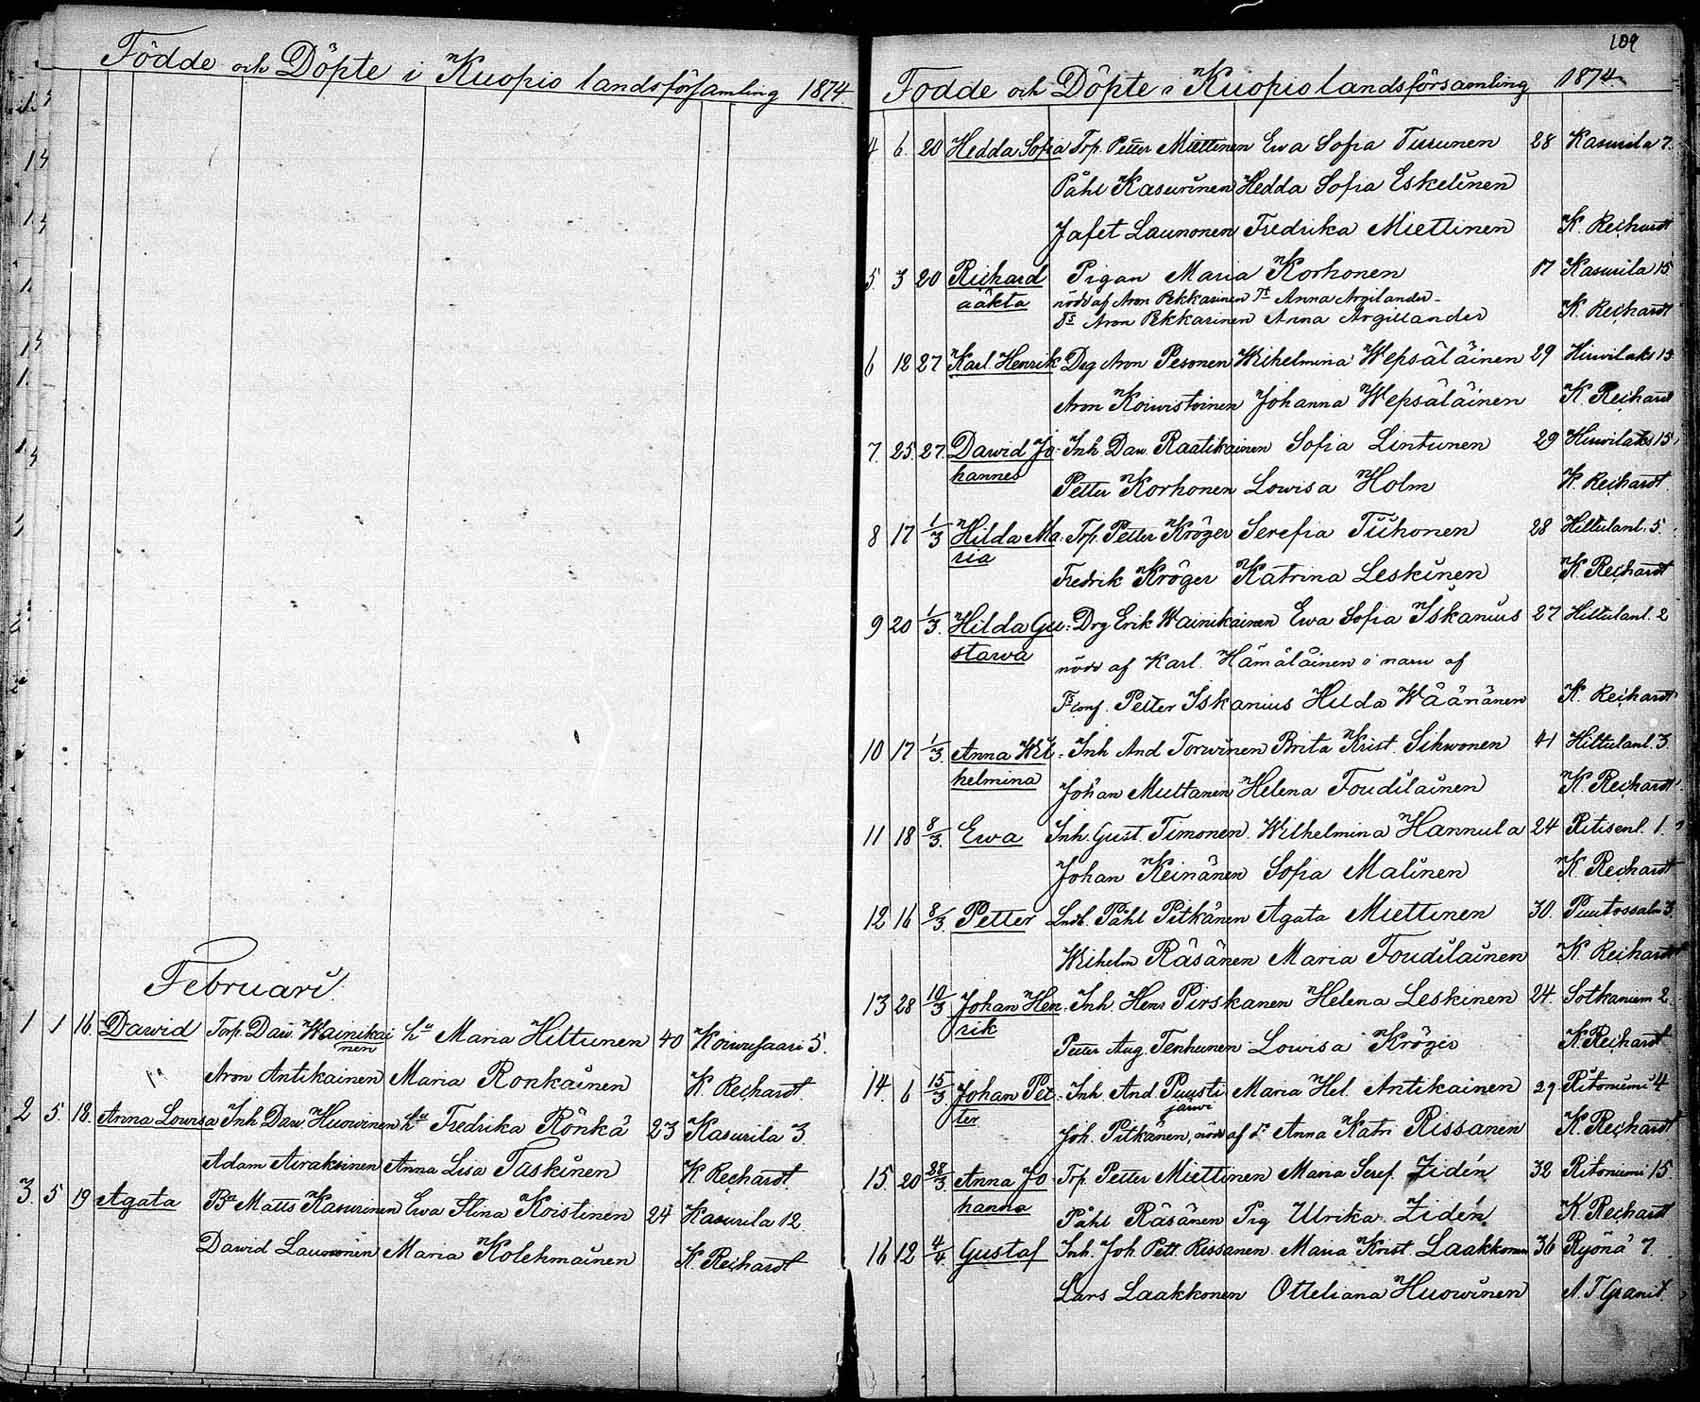 Födde och Döpte i Kuopio landsförsamling 1874.
Februari.
1 1 16 Dawid Torp. Daw. Wainikai h:u Maria Hiltunen 40 Koiwusaari 5.
nen
Aron Antikainen Maria Ronkainen K. Reichardt.
2 5 18. Anna Lowisa Inh Daw. Huowinen h:u Fredrika Rönkä 23 Kasurila 3.
Adam Airaksinen Anna Lisa Taskinen K Reichardt.
3. 5 19 Agata Matts Kasurinen Ewa Stina Koistinen 24 Kasurila 12
Dawid Launonen Maria Kolehmainen K. Reichardt
109
Födde och Döpte i Kuopio landsförsamling 1874.
4 6. 20 Hedda Sofia Trp. Petter Miettinen Ewa Sofia Tusunen 28 Kasurila 7.
Påhl Kasurinen Hedda Sofia Eskelinen
Jafet Launonen Fredrika Miettinen K. Reichardt
5 3 20 Richard Pigan Maria Korhonen 17 Kasurila 15
oäkta nöd af Aron Pekkarinen Anna Argilander
Aron Pekkarinen Anna Argillander K. Reichardt
6 12 27 Karl Henrik Drg Aron Pesonen Wilhelmina Wepsäläinen 29 Hirwilaks 13
Aron Koiwistoinen Johanna Wepsäläinen K. Reichardt
7. 25. 27. Dawid Jo- Inh. Daw. Raatikainen Sofia Lintunen 29 Hirwilaks 15
hannes Petter Korhonen Lowisa Holm K. Reichardt.
8 17 1/3 Hilda Ma- Trp. Petter Kröger Serefia Tiihonen 28 Hiltulanl. 5.
ria Fredrik Kröger Katrina Leskinen K. Reichardt
9 20 1/3. Hilda Gu- Drg Erik Wainikainen Ewa Sofia Iskanius 27 Hiltulanl. 2
stawa nöd af Karl. Hämäläinen i narw af
conf. Petter Iskanius Hilda Wäänänen K. Reichardt
10 17 1/3. Anna Wil- Inh And Torwinen Brita Krist. Sihwonen 41 Hiltulanl. 3.
helmina Johan Multanen Helena Toudilainen K. Reichardt.
11 18 8/3. Ewa Inh. Gust. Timonen. Wilhelmina Hannula 24 Ritisenl. 1.
Johan Keinänen Sofia Malinen K. Reichardt
12 16 8/3. Petter Påhl Pitkänen Agata Miettinen 30. Puutossalm 3.
Wilhelm Räsänen Maria Toudilainen K. Reichardt
13 28 10/3 Johan Hen- Inh. Henr Pirskanen Helena Leskinen 24. Sotkaniem 2.
rik Petter Aug. Tenhunen Lowisa Kröger K. Reichardt
14. 6 15/3 Johan Pet- Inh. And Puusti Maria Hel. Antikainen 29. Ritoniemi 4
ter järwi
Joh. Pitkänen, nöd af d:r Anna Katri Rissanen K. Reichardt
15. 20 28/3. Anna Jo- Trp. Petter Miettinen Maria Seref. Zidén 32 Ritoniemi 15.
hanna Påhl Räsänen Pig Ulrika Zidén K Reichardt
16 12 4/4. Gustaf Inh. Joh Pett Rissanen. Maria Krist. Laakkonen 36 Ryönä 7.
Lars Laakkonen Otteliana Huowinen A. T Granit.